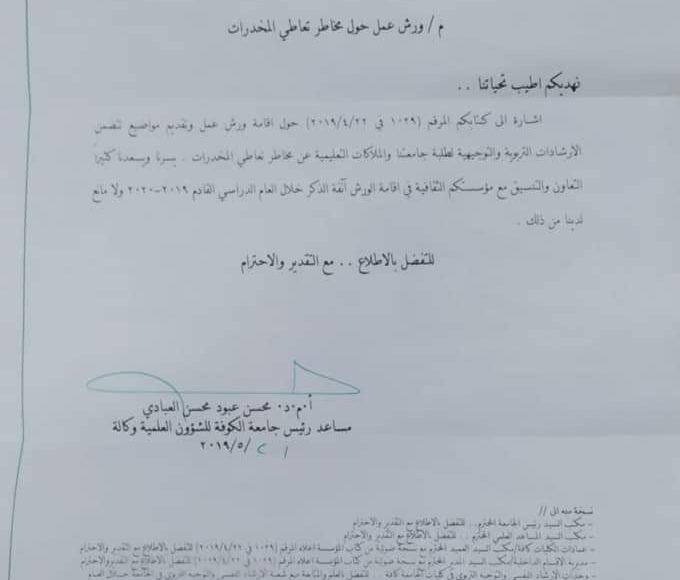 م / ورش عمل حول مخاطر تعاطي المخدرات
نهديكم اطيب تحياتنا . .
اشارة الى كتابكم المرقم (١٠٢٩ في ٢٠١٩/٤/٢٢) حول اقامة ورش عمل وتقديم مواضيع تتضمن
الارشادات التربوية والتوجيهية لطلبة جامعتنا والملاكات التعليمية عن مخاطر تعاطي المخدرات . يسرنا ويسعدنا كثيرا
التعاون والتنسيق مع مؤسستكم الثقافية في اقامة الورش آنفة الذكر خلال العام الدراسي القادم ٢٠١٩-٢٠٢٠ ولا مانع
لدينا من ذلك .
للتفضل بالاطلاع . . مع التقدير والاحترام
أ.م.د. محسن عبود محسن العبادي
مساعد رئيس جامعة الكوفة للشؤون العلمية وكالة
٢٠١٩/٥/
نسخة منه الى //
- مكتب السيد رئيس الجامعة المحترم . . للتفضل بالاطلاع مع التقدير والاحترام
- مكتب السيد المساعد العلمي المحترم . . للتفضل بالاطلاع مع التقدير والاحترام
- عمادات الكليات كافة/مكتب السيد العميد المحترم مع نسخة ضوئية من كتاب المؤسسة اعلاه المرقم (١٠٢٩ في ٢٠١٩/٤/٢٢) للتفضل بالاطلاع مع التقدير والاحترام
- مديرية الاقسام الداخلية/مكتب السيد المدير المحترم مع نسخة ضوئية من كتاب المؤسسة اعلاه المرقم (١٠٢٩ في ٢٠١٩/٤/٢٢) للتفضل بالاطلاع مع التقدير والاحترام
- الارشاد النفسي والتوجيه التربوي في كليات الجامعة كافة . . للتفضل بالعلم والمتابعة مع شعبة الارشاد النفسي والتوجيه التربوي في الجامعة خلال العام